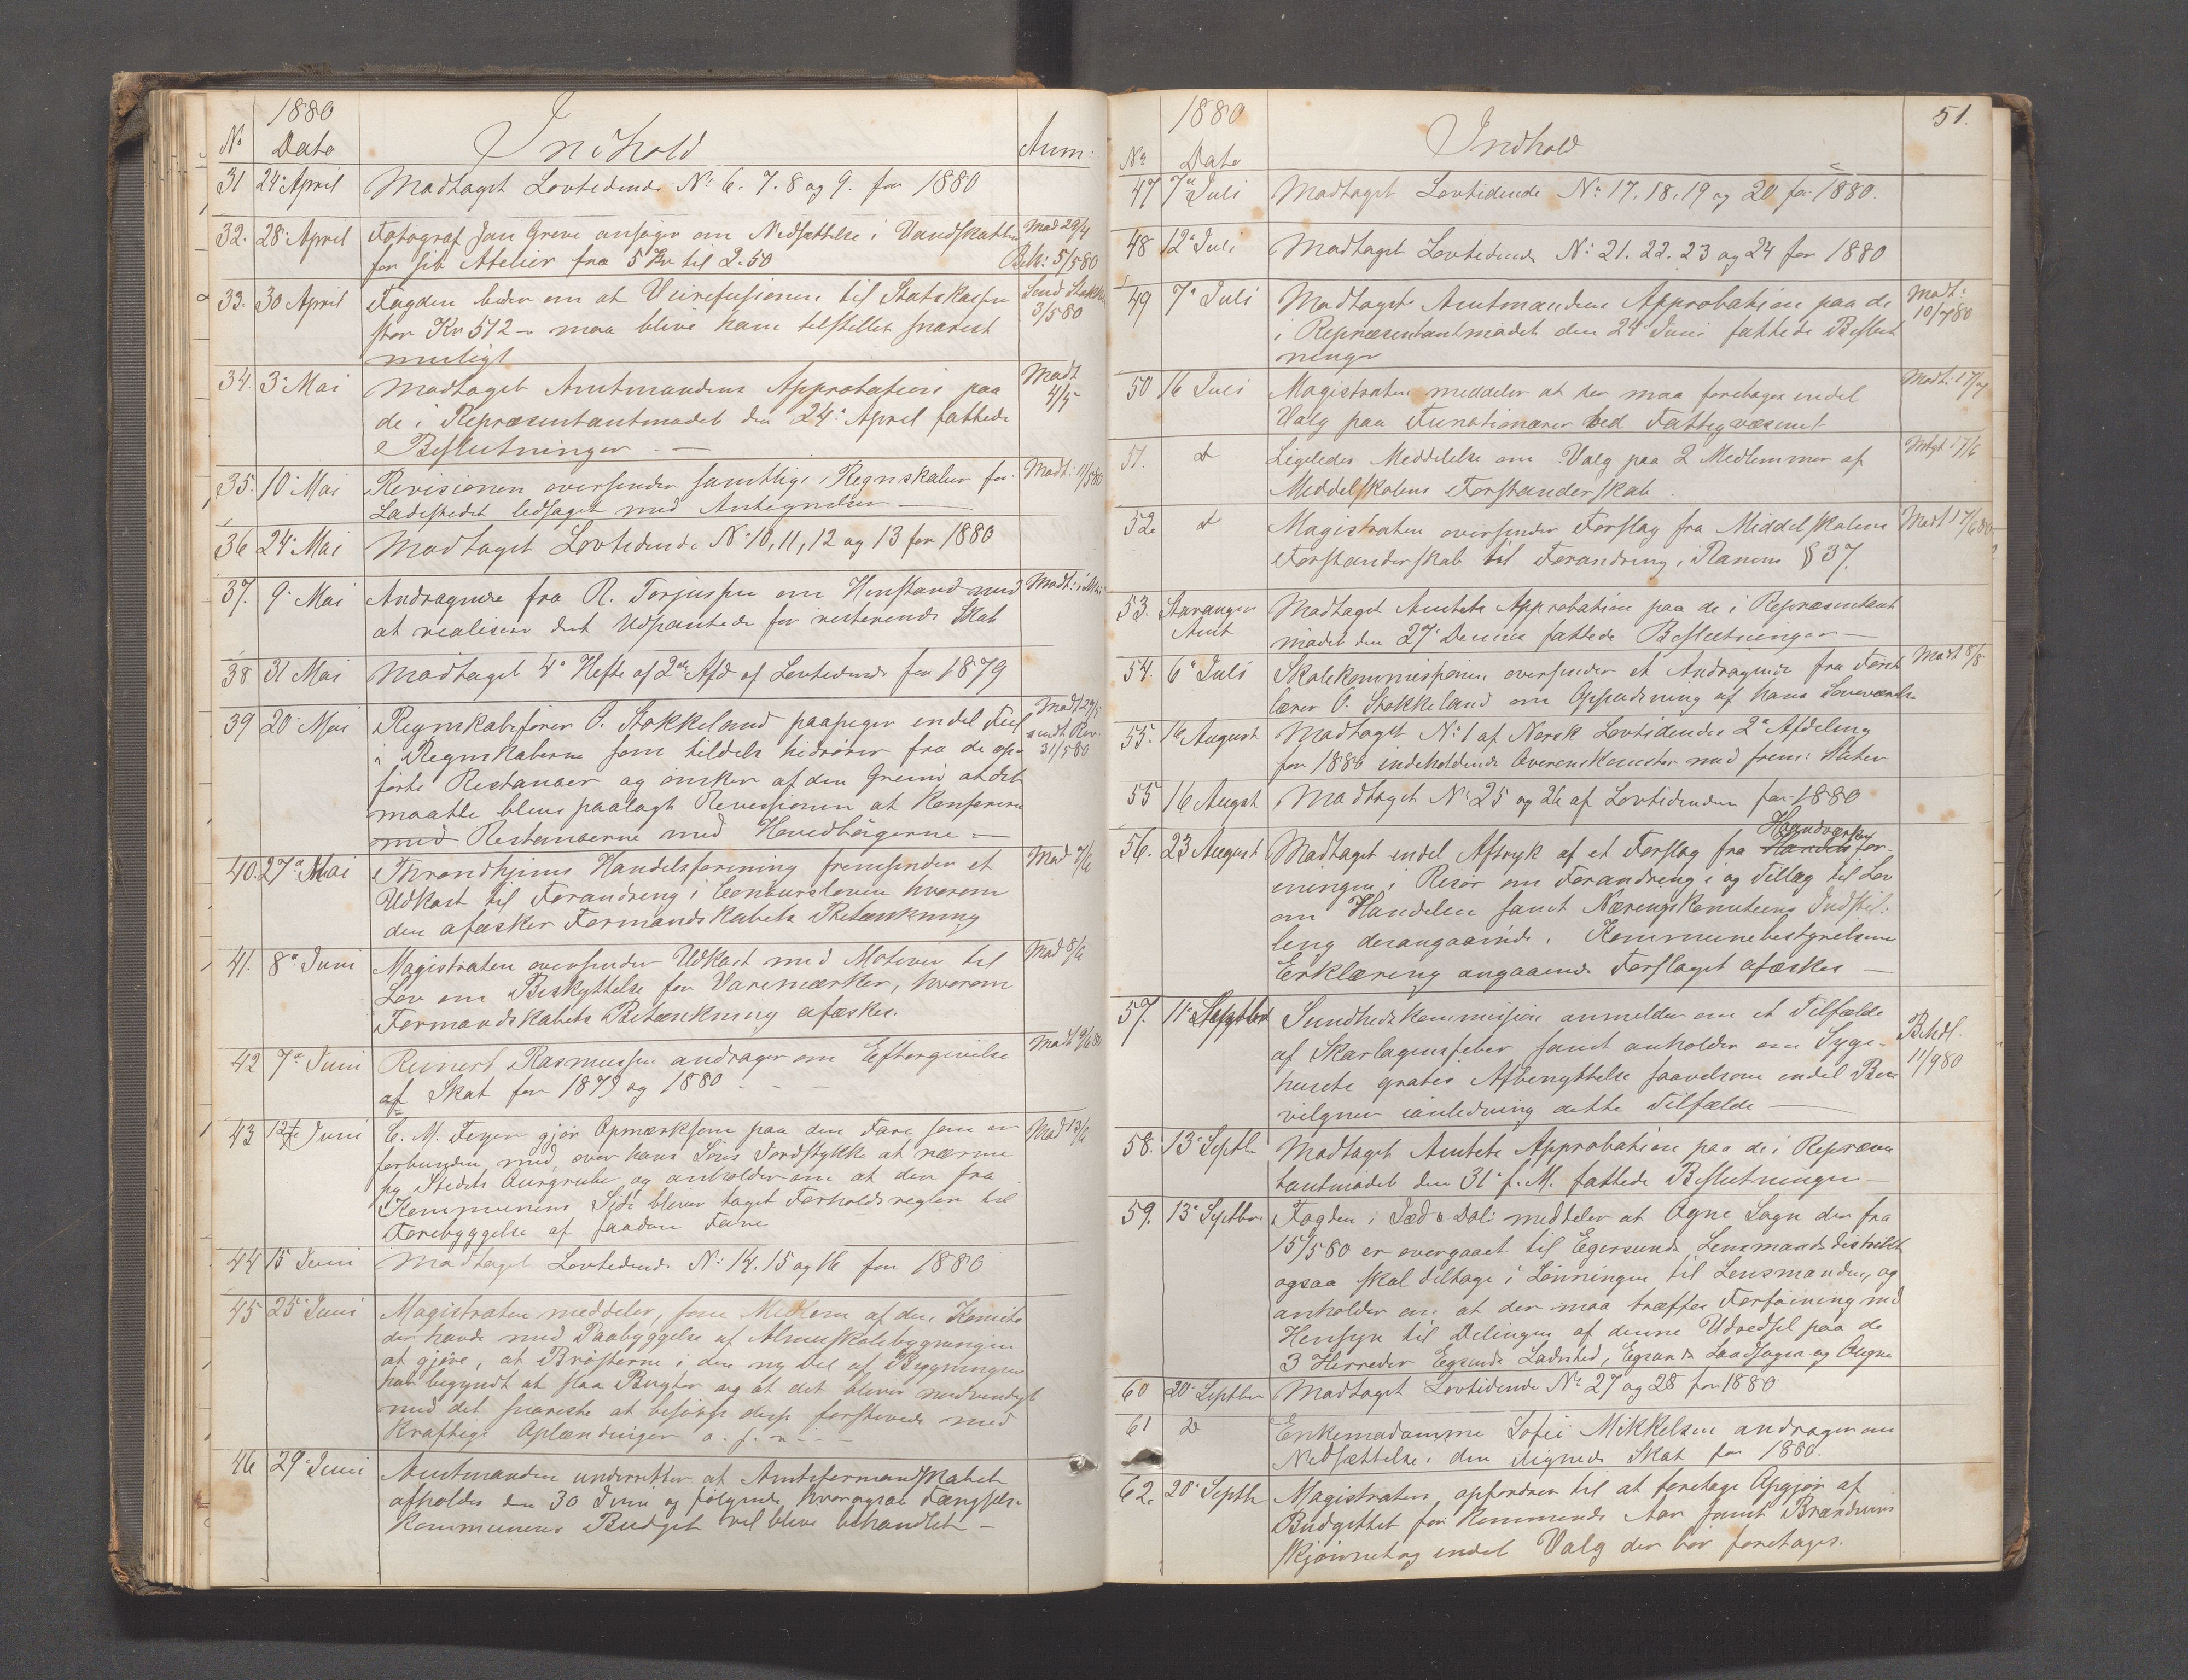 1880
No Dato Indhold Anm:
31 24 April Modtaget Lovtidende No 6. 7. 8 og 9. for 1880
32. 28 April Fotograf Jan Greve ansøger om Nedsættelse i Vandskatten Mod 29/4
for sit Atelier fra 5 Kr til 2.50 Beh: 5/5 80
33. 30 April Fogden beder om at Veirefusionen til Statskassen Send Stokke
stor Kr 512 - maa blive ham tilstillet snarest 3/5 80
muligt
34. 3 Mai Modtaget Amtmandens Approbation paa Modt
de i Repræsentantmødet den 24 April fattede 4/5
Beslutninger
35. 10 Mai Revisionen oversender samtlige Regnskaber for Modt: 11/5 80
Ladestedet ledsaget med Antegnelser
36 24 Mai Modtaget Lovtidende No 10, 11, 12 og 13 for 1880
37. 9 Mai Andragende fra R. Torjussen om Henstand med Modt:
at realisere det Udpantede for resterende Skat
38 31 Mai Modtaget 4 Hefte af 2den Afd af Lovtidende for 1879
39 20 Mai Regnskabsfører O. Stokkeland paapeger endel Feil Modt
i Regnskaberne som tildels hidrører fra de op= sendt Rev.
førte Restancer og ønsker af den Grund at det 31/5 80
maatte blive paalagt Revisionen at konferere
med Restancerne med Hovedbøgerne
40. 27 Mai Throndhjems Handelsforening fremsender et Mod 7/6
Udkast til Forandring i Concursloven hvorom
den afæsker Formandskabets Betænkning
41. 8 Juni Magistraten oversender Udkast med Motiver til Mod 8/6
Lov om Beskyttelse for Varemærker, hvorom
Formandskabets Betænkning afæskes.
42 7 Juni Reinert Rasmussen andrager om Eftergivelse Modt 9/6 80
af Skat for 1879 og 1880
43 12 Juni C. M. Feyer gjør Opmærksom paa den Fare som er Mod 13/6
forbunden med, over hans Jordstykke at
og anholder om at der fra
Kommunens Side bliver taget Forholdsregler til
Forebyggelse af saadan Fare
44 15 Juni Modtaget Lovtidende No 14. 15 og 16 for 1880
45 25 Juni Magistraten meddeler, som Medlem af den Komite
der havde med Paabyggelse af Almueskolebygningen
at gjøre, at Brøsterne i den ny Del af Bygningen
har begyndt at slaa Bugter og at det bliver nødvendigt
med det snareste at besørge disse forstevede med
kraftige Oplændinger o. s. v.
46 29 Juni Amtmanden underretter at Amtsformandskabet
afholdes den 30 Juni og følgende, hvor ogsaa Fængsels-
kommunens Budget vil blive behandlet -
51.
1880
No Dato Indhold
47 7 Juli Modtaget Lovtidende No 17. 18. 19 og 20 for 1880.
48 12 Juli Modtaget Lovtidende No 21. 22. 23 og 24 for 1880
49 7 Juli Modtaget Amtmandens Approbation paa de Modt:
i Repræsentantmødet den 24 Juni fattede Beslut 10/7 80
ninger
50 16 Juli Magistraten meddeler at der maa foretages endel Modt: 17/7
Valg paa Funktionærer ved Fattigvæsenet
51. do Ligeledes Meddelelse om Valg paa 2 Medlemmer af 17/6
Middelskolens Forstanderskab.
52. do Magistraten oversender Forslag fra Middelskolens Modt 17/6 80
Forstanderskab til Forandring i Planens § 37.
53. Stavanger Modtaget Amtets Approbation paa de i Repræsentant
Amt mødet den 27 Dennes fattede Beslutninger
54. 6 Juli Skolekommissionen oversender et Andragende fra Første Modt 8/8
lærer O. Stokkeland om Opsudning af hans
55. 16 August Modtaget No 1 af Norsk Lovtidendes 2 Afdeling
for 1880 indeholdende Overenskomster med frem: Stater
55 16 Augst Modtaget No 25 og 26 af Lovtidenden for 1880
Haandværker
56. 23 August Modtaget endel Aftryk af et Forslag fra Handels for-
eningen i Risør om Forandring i og Tillæg til Lov
om Handelen samt Næringskomiteens Indstil:
ling desangaaende. Kommunebestyrelsens
Erklæring angaaende Forslaget afæskes
57. 11 Septbr Sundhedskommission anmelder om et Tilfælde
af Skarlagensfeber samt anholder om Syge- Behdl.
husets gratis Afbenyttelse saavelsom endel Be 11/9 80
vilgner ianledning dette Tilfælde
58. 13 Septb Modtaget Amtets Approbation paa de i Repræsen
tantmødet den 31 f. M. fattede Beslutninger
59. 13 Septbr Fogden i Jæd & Dal: meddeler at Ogne Sogn der fra
15/5 80 er overgaaet til Egersunds Lensmandsdistrikt
ogsaa skal deltage i Lønningen til Lensmanden, og
anholder om at der maa træffes Forføining med
Hensyn til Delingen af denne Udredsel paa de
3 Herreder Egsunds Ladested, Egsunds Landsogn og Ougne
60 20 Septbr Modtaget Lovtidende No 27 og 28 for 1880
61 do Enkemadamme Sofie Mikkelsen andrager om
Nedsættelse i den ilignede Skat for 1880.
62. 20 Septb Magistraten opfordrer til at foretage Opgjør af
Budgettet for kommende Aar samt Brændevins
skjønnet og endel Valg der bør foretages.